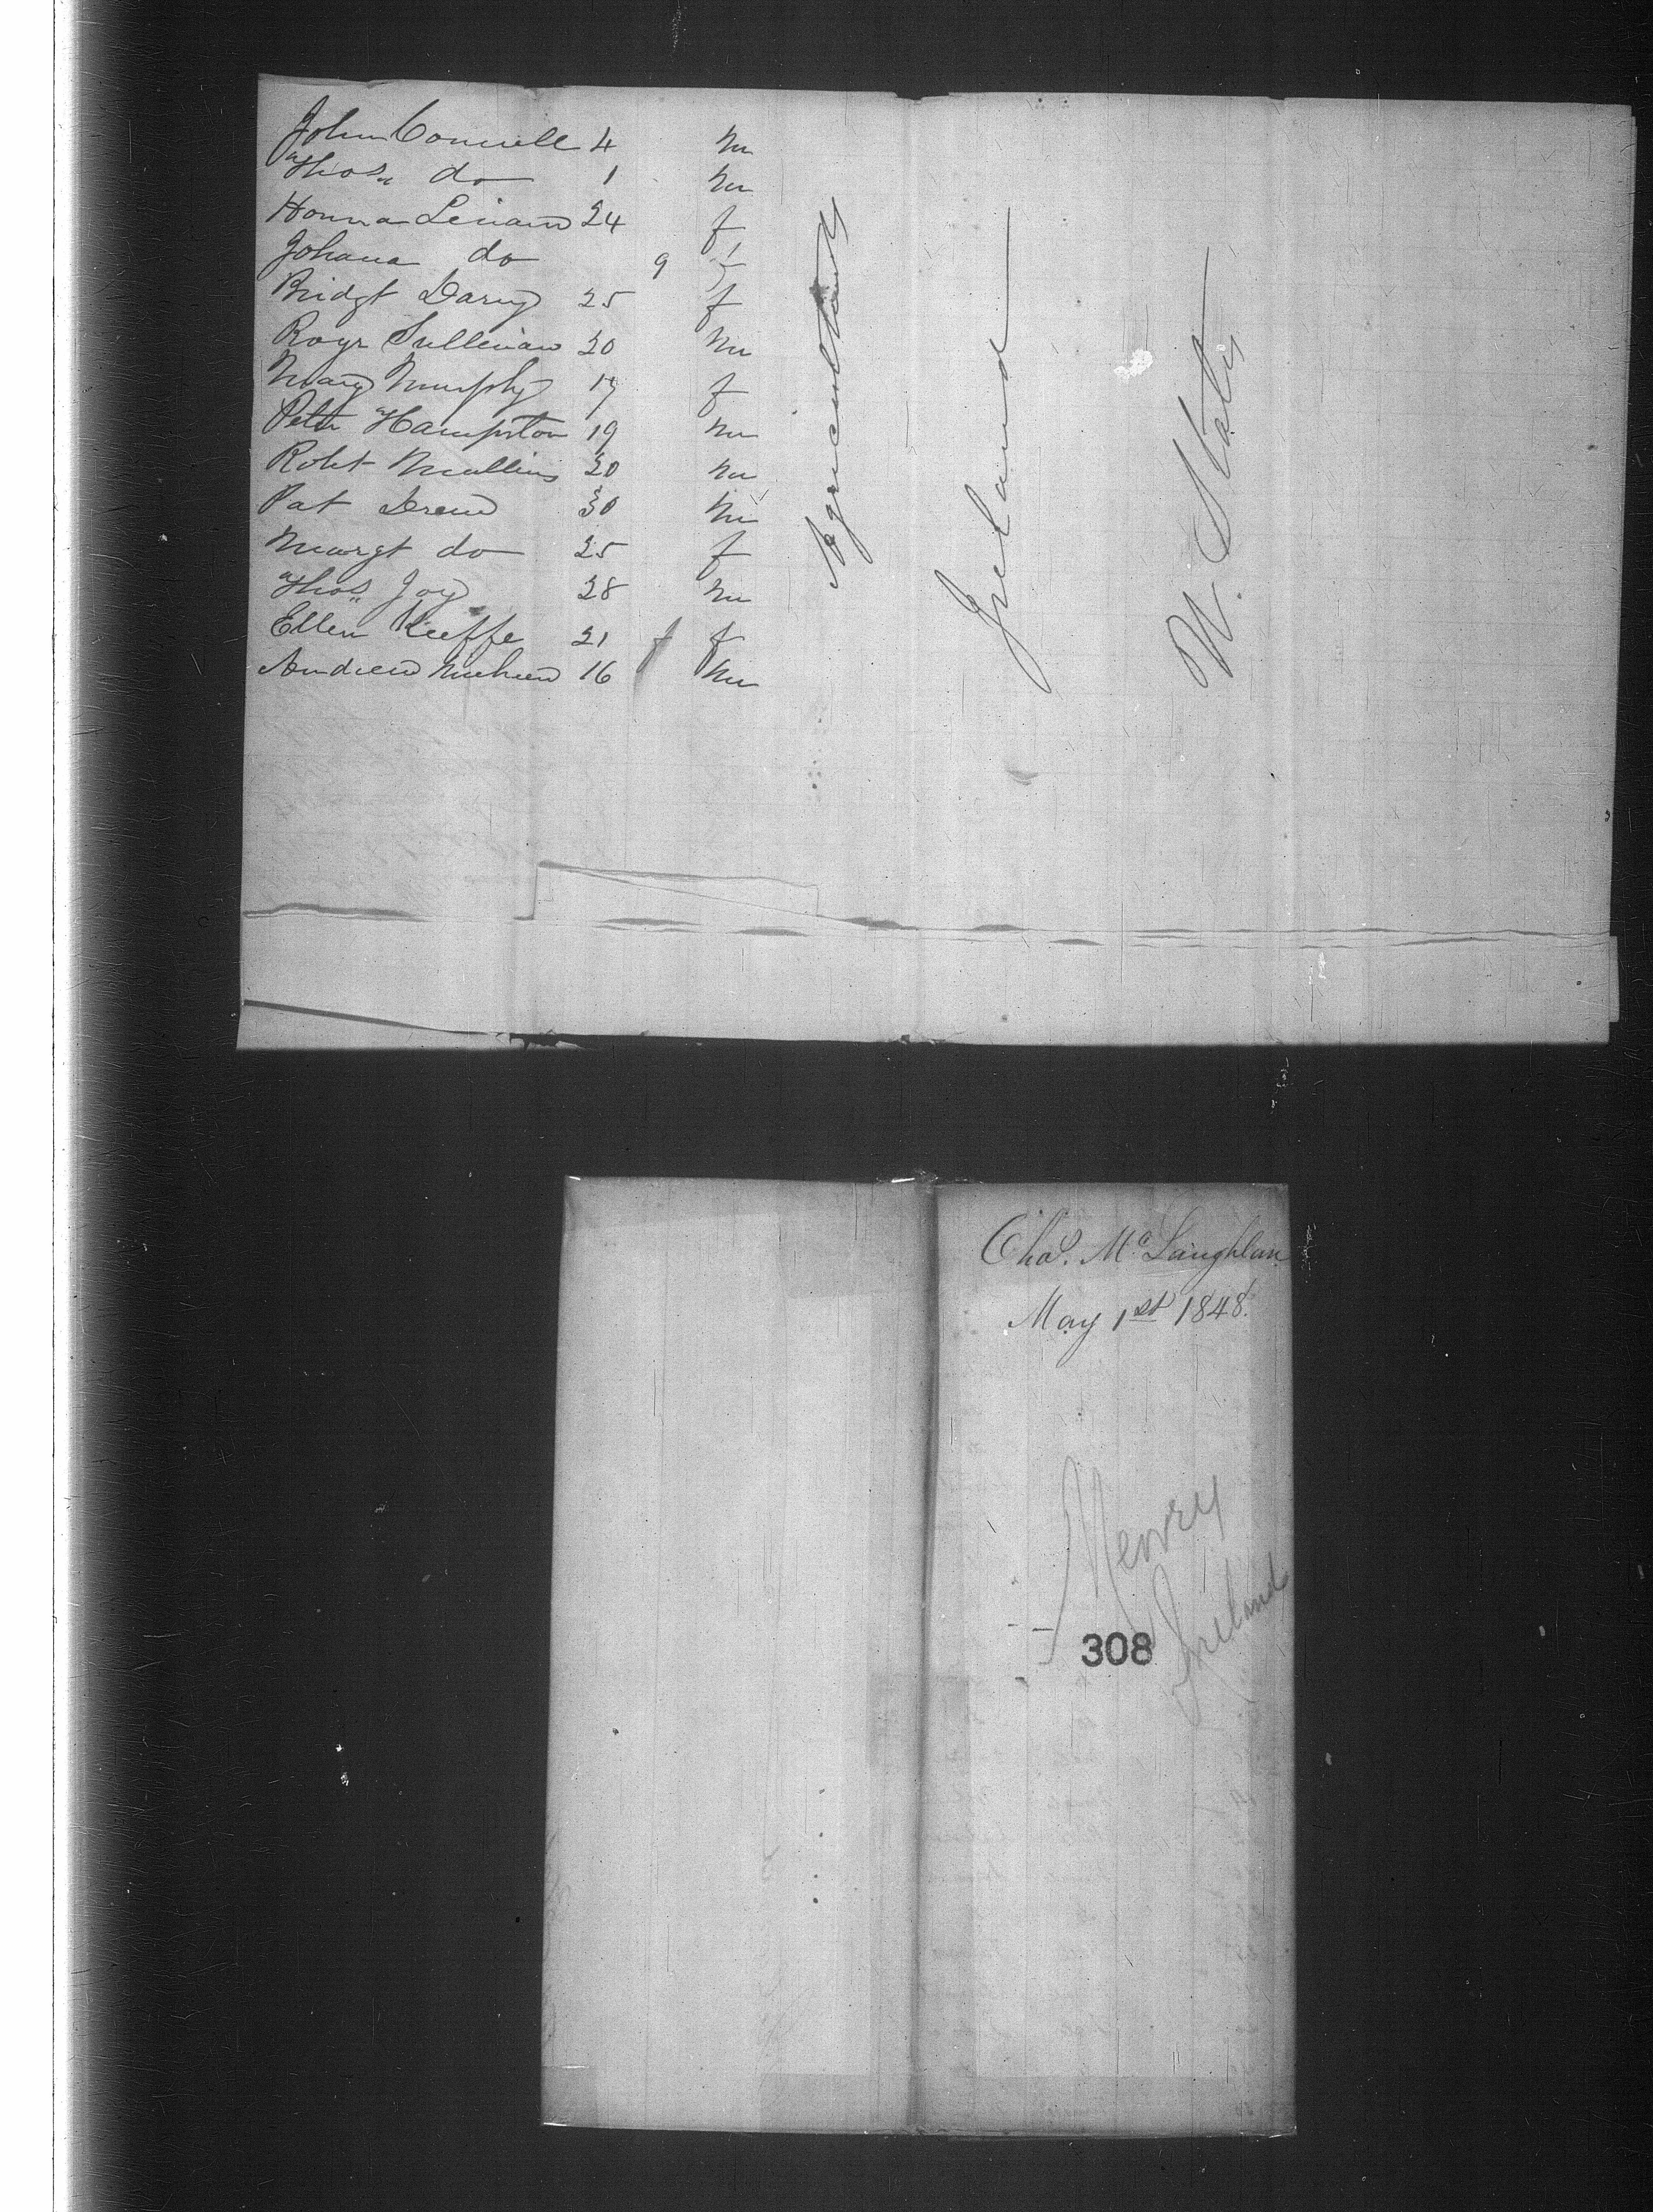 John Connell 4 m
Thos. do 1 m
Honna 24 f
Johana do 9 f
Bridgt Darcy 25 f
Rogr Sullivan 20 m
Mary Murphy 17 f
Peter Hampston 19 m
Robt Mullins 20 m
Pat Drew 30 m
Margt do 25 f
Thos. Joy 28 m
Ellen Keeffe 21 f f
Andrew 16 m
Agriculturists
Ireland
U. States
Chas. McLaughlan
May 1st 1848.
Newry
Ireland
308